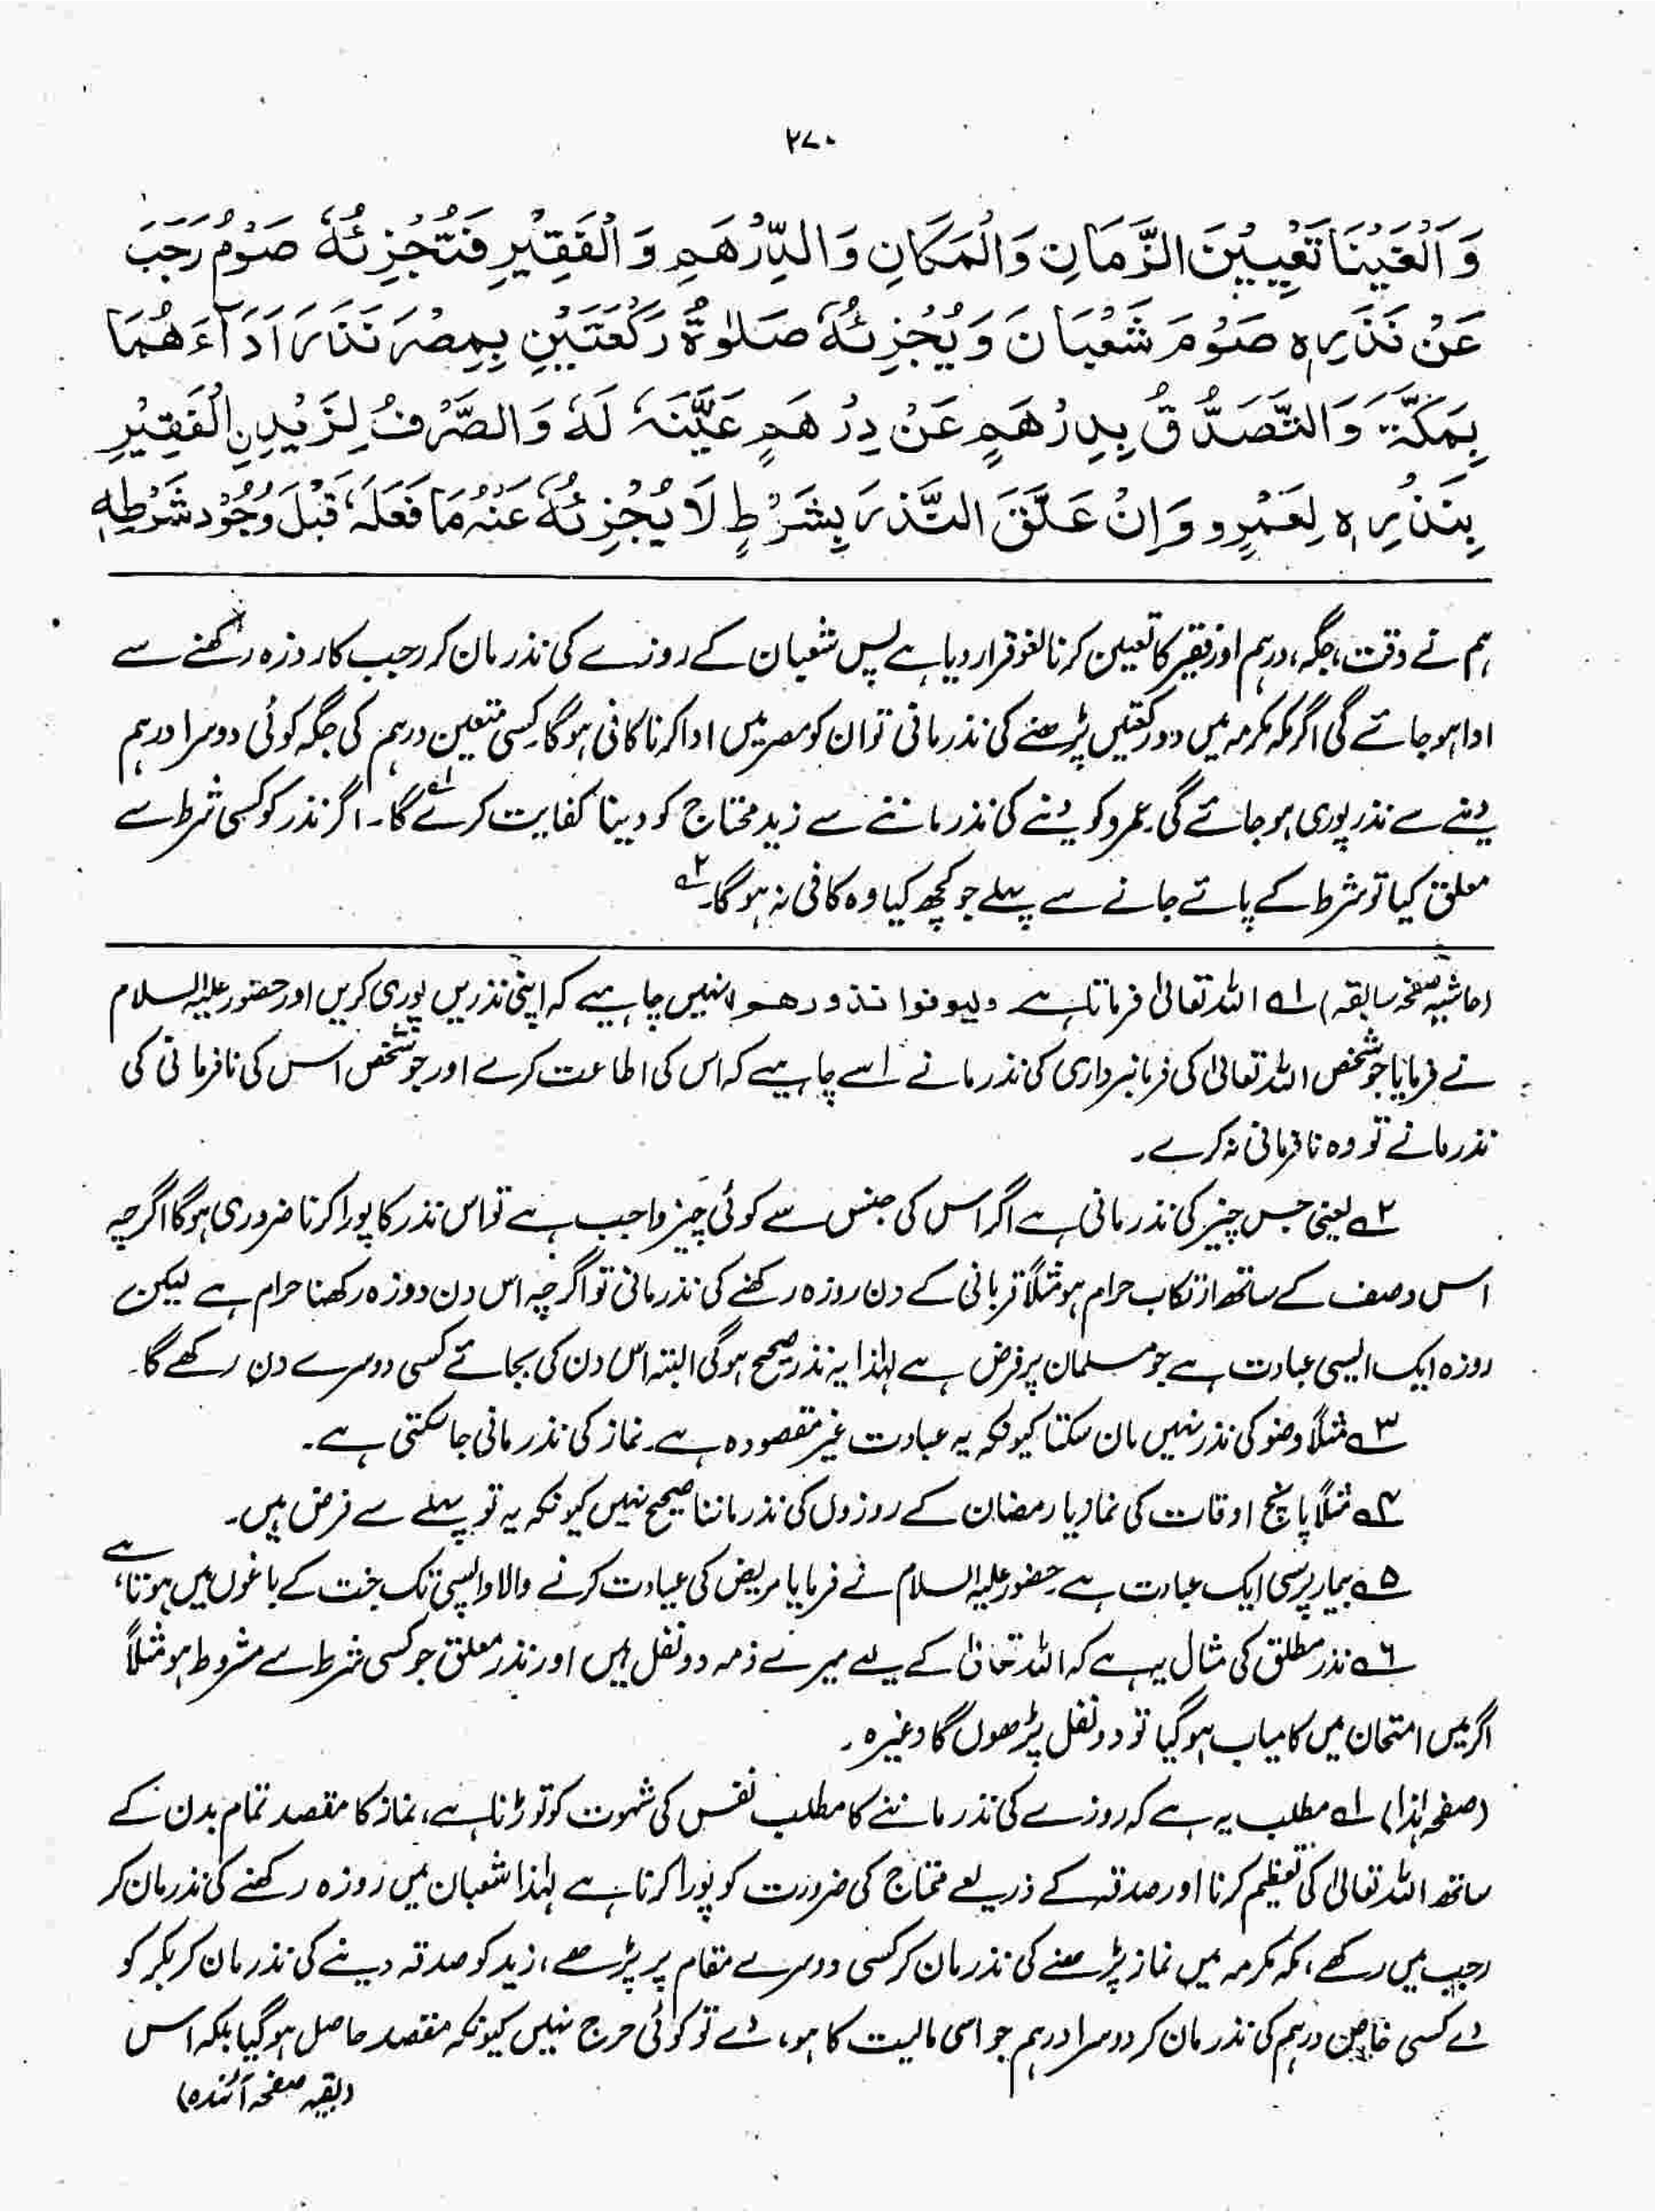 ۲۷۰
وَاَلْغَيْنَا تَعْيِيْنَ الزَّمَانِ وَالْمَكَانِ وَالدِّرْهَمِ وَالْفَقِيْرِ فَتُجْزِئُهٗ صَوْمُ رَجَبَ
عَنْ نَذْرِهٖ صَوْمَ شَعْبَانَ وَيُجْزِئُهٗ صَلٰوةُ رَكْعَتَيْنِ بِمِصْرَ نَذَرَ اَدَآءَهُمَا
بِمَكَّةَ وَالتَّصَدُّقُ بِدِرْهَمٍ عَنْ دِرْهَمٍ عَيَّنَهٗ لَهٗ وَالصَّرْفُ لِزَيْدِنِ الْفَقِيْرِ
بِنَذْرِهٖ لِعَمْرٍو وَاِنْ عَلَّقَ النَّذْرَ بِشَرْطٍ لَا يُجْزِئُهٗ عَنْهُ مَا فَعَلَهٗ قَبْلَ وُجُوْدِ شَرْطِهٖ
ہم نے وقت، جگہ، درہم اور فقیر کا تعین کرنا لغو قرار دیا ہے پس شعبان کے روزے کی نذر مان کر رجب کا روزہ رکھنے سے
ادا ہو جائے گی اگر مکہ مکرمہ میں دو رکعتیں پڑھنے کی نذر مانی تو ان کو مصر میں ادا کرنا کافی ہوگا۔ کسی متعین درہم کی جگہ کوئی دوسرا درہم
دینے سے نذر پوری ہو جائے گی۔ عمرو کو دینے کی نذر ماننے سے زید محتاج کو دینا کفایت کرے گا۔ لہ اگر نذر کو کسی شرط سے
معلق کیا تو شرط کے پائے جانے سے پہلے جو کچھ کیا وہ کافی نہ ہوگا۔ ۲ہ
(حاشیہ صفحہ سابقہ) لہ اللہ تعالیٰ فرماتا ہے ولیوفوا نذورهم انہیں چاہیے کہ اپنی نذریں پوری کریں اور حضور علیہ السلام
نے فرمایا جو شخص اللہ تعالیٰ کی فرمانبرداری کی نذر مانے اسے چاہیے کہ اس کی اطاعت کرے اور جو شخص اس کی نافرمانی کی
نذر مانے تو وہ نافرمانی نہ کرے۔
۲ہ یعنی جس چیز کی نذر مانی ہے اگر اس کی جنس سے کوئی چیز واجب ہے تو اس نذر کا پورا کرنا ضروری ہوگا اگرچہ
اس وصف کے ساتھ ارتکاب حرام ہو مثلاً قربانی کے دن روزہ رکھنے کی نذر مانی تو اگرچہ اس دن روزہ رکھنا حرام ہے لیکن
روزہ ایک ایسی عبادت ہے جو مسلمان پر فرض ہے لہٰذا یہ نذر صحیح ہوگی البتہ اس دن کی بجائے کسی دوسرے دن رکھے گا۔
۳ہ مثلاً وضو کی نذر نہیں مان سکتا کیونکہ یہ عبادت غیر مقصودہ ہے۔ نماز کی نذر مانی جا سکتی ہے۔
۴ہ مثلاً پانچ اوقات کی نماز یا رمضان کے روزوں کی نذر ماننا صحیح نہیں کیونکہ یہ تو پہلے سے فرض ہیں۔
۵ہ بیمار پرسی ایک عبادت ہے۔ حضور علیہ السلام نے فرمایا مریض کی عیادت کرنے والا واپسی تک جنت کے باغوں میں ہوتا ہے
۶ہ نذر مطلق کی مثال یہ ہے کہ اللہ تعالیٰ کے لیے میرے ذمہ دو نفل ہیں اور نذر معلق جو کسی شرط سے مشروط ہو مثلاً
اگر میں امتحان میں کامیاب ہو گیا تو دو نفل پڑھوں گا وغیرہ۔
(صفحہ ہٰذا) لہ مطلب یہ ہے کہ روزے کی نذر ماننے کا مطلب نفس کی شہوت کو توڑنا ہے، نماز کا مقصد تمام بدن کے
ساتھ اللہ تعالیٰ کی تعظیم کرنا اور صدقہ کے ذریعے محتاج کی ضرورت کو پورا کرنا ہے لہٰذا شعبان میں روزہ رکھنے کی نذر مان کر
رجب میں رکھے، مکہ مکرمہ میں نماز پڑھنے کی نذر مان کر کسی دوسرے مقام پر پڑھے، زید کو صدقہ دینے کی نذر مان کر بکر کو
دے کسی خاص درہم کی نذر مان کر دوسرا درہم جو اسی مالیت کا ہو، دے تو کوئی حرج نہیں کیونکہ مقصد حاصل ہو گیا بلکہ اس
(بقیہ صفحہ آئندہ)